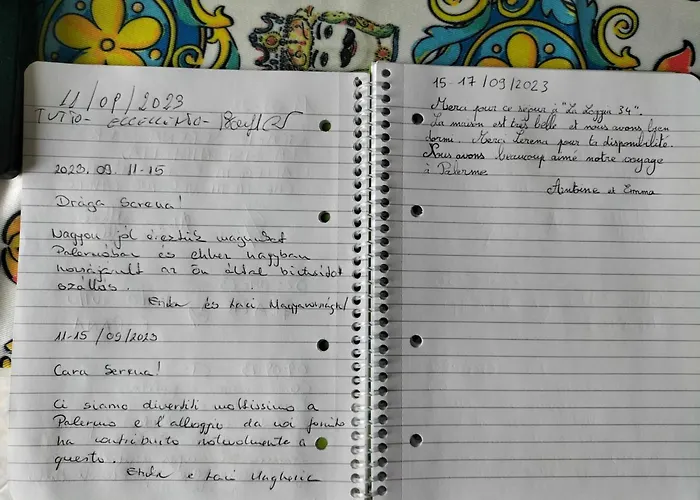 11/09/2023
TUTTO - ECCELLENTE -
2023. 09. 11-15
Drága Serena!
Nagyon jól éreztük magunkat
Palermóban és ehhez nagyban
hozzájárult az Ön által biztosított
szállás.
Erika és Laci Magyarország
11-15 /09/2023
Cara Serena!
Ci siamo divertiti moltissimo a
Palermo e l'alloggio da voi fornito
ha contribuito notevolmente a
questo.
Erika e Laci Ungheria
15-17/09/2023
Merci pour ce séjour à "La Loggia 34".
La maison est très belle et nous avons bien
dormi. Merci Serena pour ta disponibilité.
Nous avons beaucoup aimé notre voyage
à Palerme.
Antoine et Emma